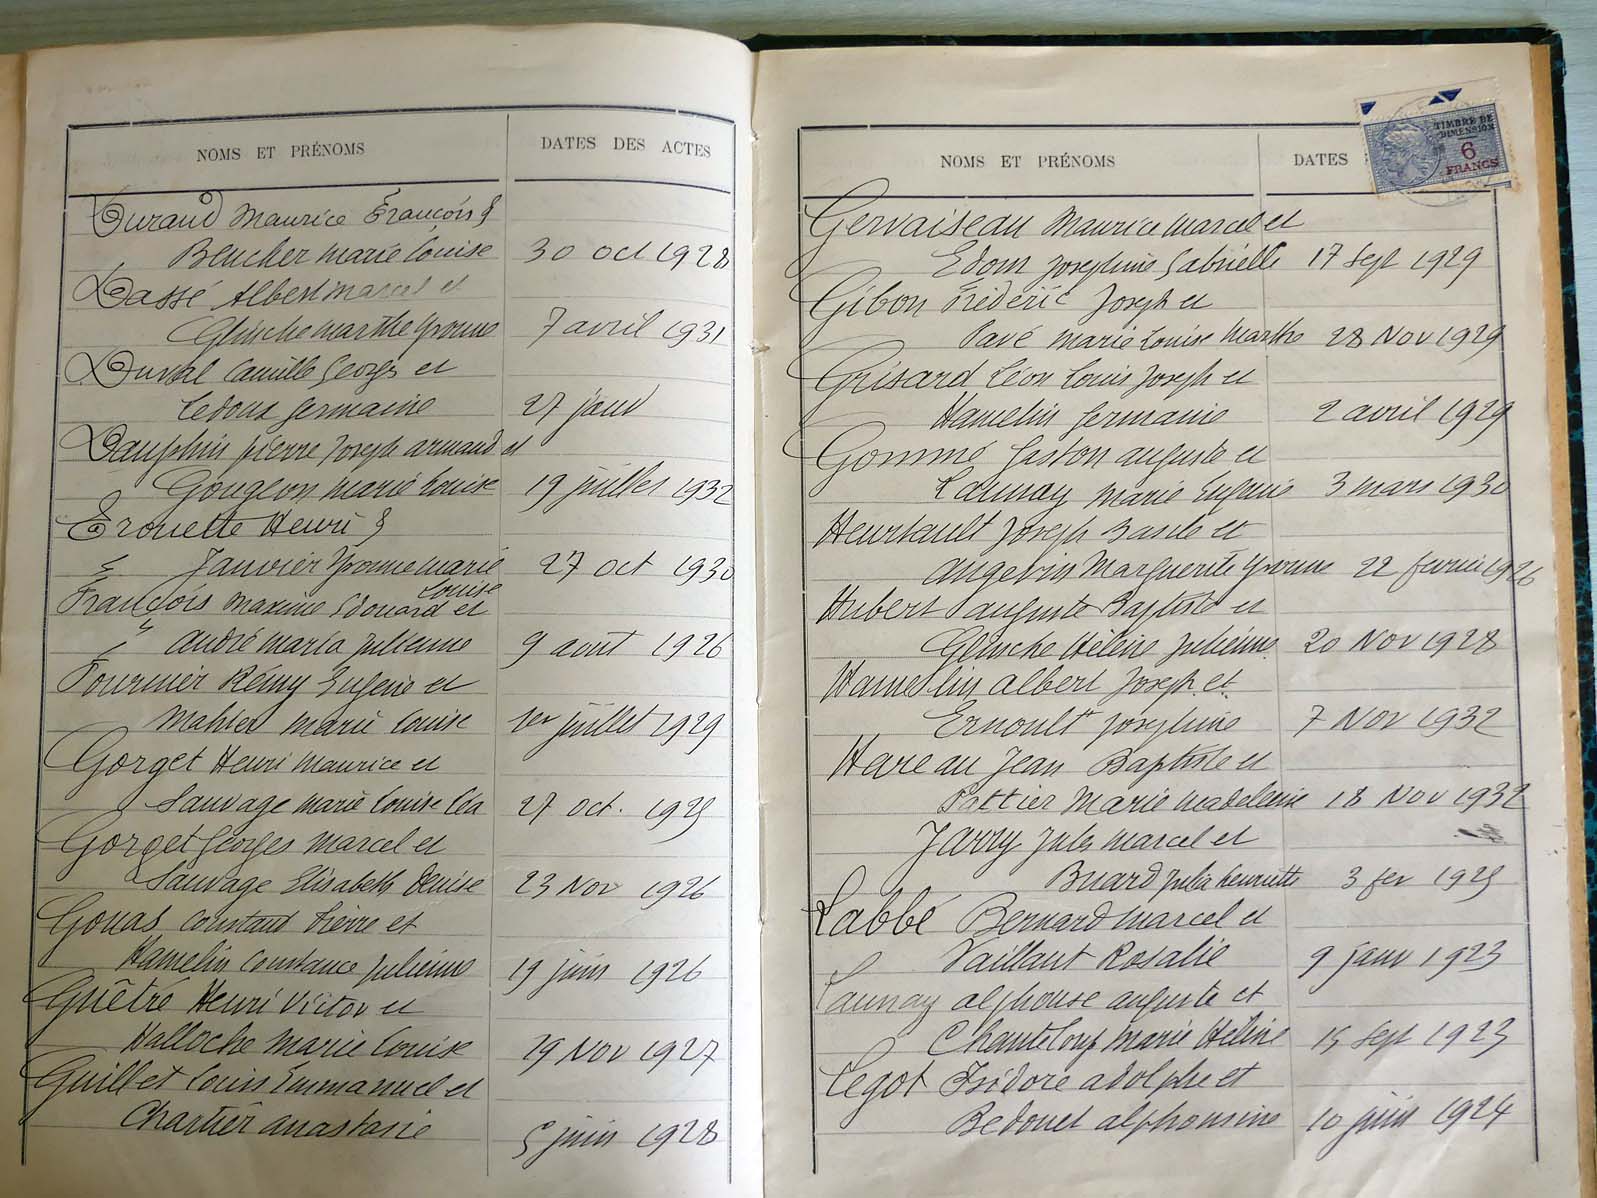 NOMS ET PRÉNOMS DATES DES ACTES
Durand Maurice François &
Beucher Marie Louise 30 oct 1928
Dassé Albert Marcel et
Gluche Marthe Yvonne 7 avril 1931
Duval Camille Georges et
Ledoux Germaine 27 janv
Dauphin Pierre Joseph Armand et
Gougeon Marie Louise 19 juillet 1932
Erouette Henri &
Janvier Yvonne Marie Louise 27 oct 1930
François Maxime Edouard et
André Maria Julienne 9 août 1926
Fournier Rémy Eugène et
Mahier Marie Louise 1er juillet 1929
Gorget Henri Maurice et
Sauvage Marie Louise Léa 27 oct. 1925
Gorget Georges Marcel et
Sauvage Elisabeth Denise 23 Nov 1926
Gouas Constand Pierre et
Hamelin Constance Julienne 19 juin 1926
Guêtré Henri Victor et
Halloche Marie Louise 29 Nov 1927
Guillet Louis Emmanuel et
Chartier Anastasie 5 juin 1928
NOMS ET PRÉNOMS DATES
TIMBRE DE
DIMENSION
6
FRANCS
Gervaiseau Maurice Marcel et
Edom Josephine Gabrielle 17 Sept 1929
Gibon Fréderic Joseph et
Pavé Marie Louise Marthe 28 Nov 1929
Grisard Léon Louis Joseph et
Hamelin Germaine 2 avril 1929
Gommé Gaston Auguste et
Launay Marie Eugénie 3 mars 1930
Heurtault Joseph Basile et
Angevin Marguerite Yvonne 22 février 1926
Hubert Auguste Baptiste et
Gluche Hélène Julienne 20 Nov 1928
Hamelin Albert Joseph et
Ernoult Josephine 7 Nov 1932
Hareau Jean Baptiste et
Pottier Marie Madeleine 18 Nov 1932
Jarry Jules Marcel et
Buard Julia Henriette 3 fev 1925
Labbé Bernard Marcel et
Vaillant Rosalie 9 janv 1923
Launay Alphonse Auguste et
Chanteloup Marie Hélène 15 Sept 1923
Legot Isidore Adolphe et
Bedouet Alphonsine 10 juin 1924